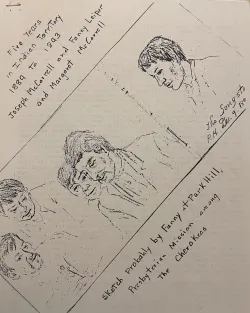 Five Years
in Indian Territory
1889 To 1893
Joseph McCorrell and Fanny Leiper
and Margaret McCorrell
The Songsto
P.H. Dec. 9
Sketch Probably by Fanny at Park Hill,
Presbyterian Mission among
The Cherokees